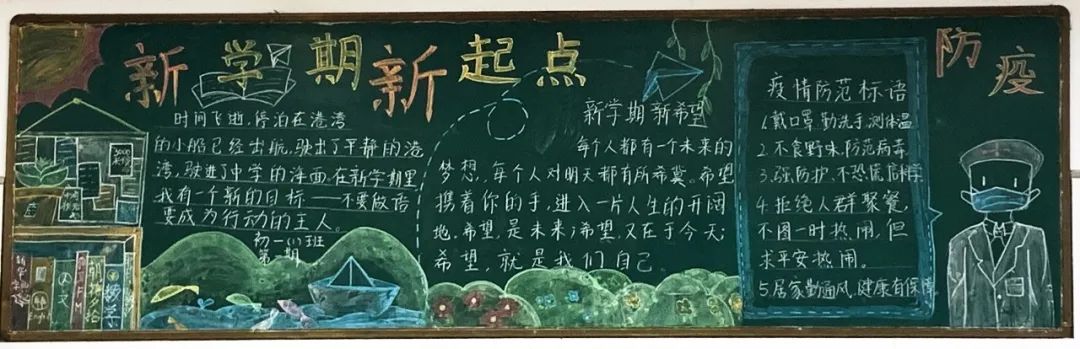 新学期新起点
时间飞逝,停泊在港湾
的小船已经出航,驶出了平静的港
湾,驶进了中学的海面.在新学期里,
我有一个新的目标——不要做语
要成为行动的主人。
初一(1)班
第一期
新学期 新希望
每个人都有一个未来的
梦想,每个人对明天都有所希冀。希望
携着你的手,进入一片人生的开阔
地。希望,是未来;希望,又在于今天;
希望,就是我们自己.
防疫
疫情防范标语
1.戴口罩 勤洗手 测体温
2.不食野味,防范病毒
3.强防护,不恐慌,信科学
4.拒绝人群聚餐,
不图一时热闹,但
求平安热闹。
5.居家勤通风,健康有保障
数学
朝花夕拾